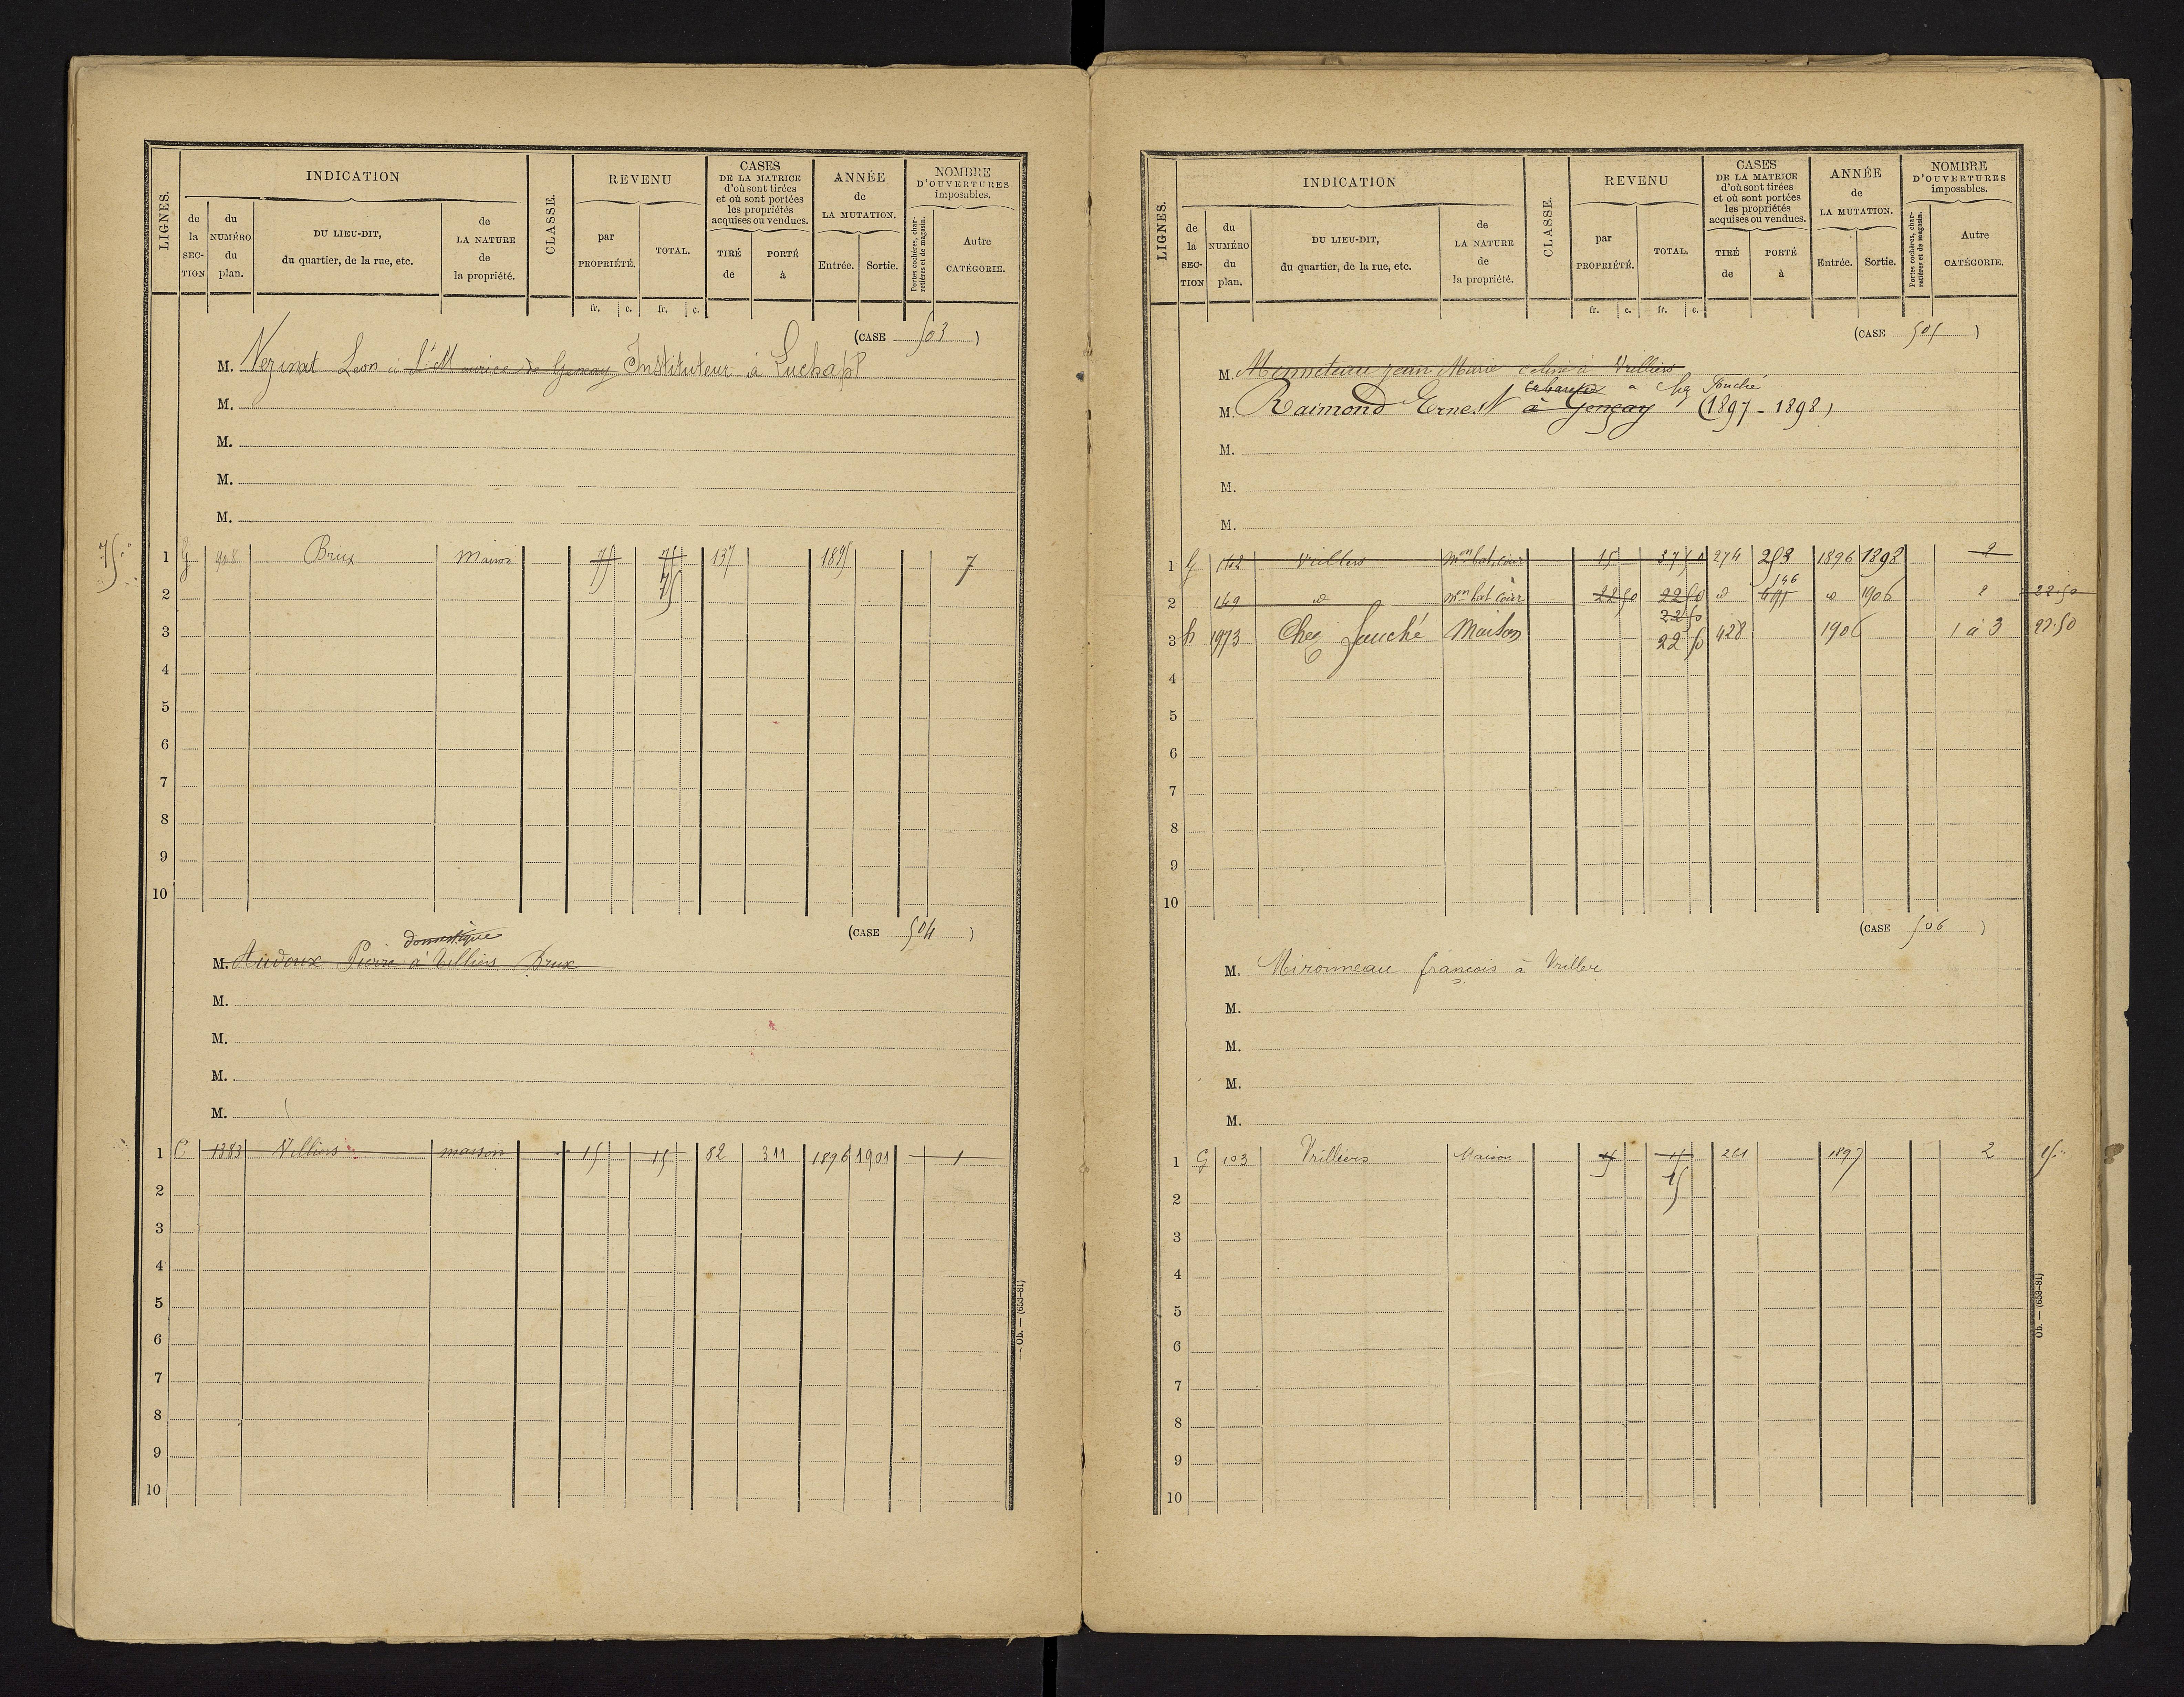 LIGNES.
INDICATION
de la SECTION
du NUMÉRO du plan.
DU LIEU-DIT, du quartier, de la rue, etc.
de LA NATURE de la propriété.
CLASSE.
REVENU
par PROPRIÉTÉ.
TOTAL.
fr. c. fr. c.
CASES DE LA MATRICE d'où sont tirées et où sont portées les propriétés acquises ou vendues.
TIRÉ de
PORTÉ à
ANNÉE de LA MUTATION.
Entrée. Sortie.
NOMBRE D'OUVERTURES imposables.
Portes cochères, charretières et de magasin.
Autre CATÉGORIE.
(CASE 503)
M. Leon à St Maurice de Gençay Instituteur à Luchapt
M.
M.
M.
M.
75
1 G Brux Maison 75 75 137 1895 7
2 75
3
4
5
6
7
8
9
10
(CASE 504)
domestique
M. Audoux Pierre à Villiers Brux
M.
M.
M.
M.
1 C 1383 Villiers maison 15 15 82 311 1896 1901 1
2
3
4
5
6
7
8
9
10
Ob. — (653-81)
LIGNES.
INDICATION
de la SECTION
du NUMÉRO du plan.
DU LIEU-DIT, du quartier, de la rue, etc.
de LA NATURE de la propriété.
CLASSE.
REVENU
par PROPRIÉTÉ.
TOTAL.
fr. c. fr. c.
CASES DE LA MATRICE d'où sont tirées et où sont portées les propriétés acquises ou vendues.
TIRÉ de
PORTÉ à
ANNÉE de LA MUTATION.
Entrée. Sortie.
NOMBRE D'OUVERTURES imposables.
Portes cochères, charretières et de magasin.
Autre CATÉGORIE.
(CASE 505)
M. jean Marie à Vrilliers
à Chez Fouché
M. Raimond Ernest à Gençay (1897-1898)
M.
M.
M.
1 G 142 Vrilliers mon bat, cour 15 37 50 274 253 1896 1898 2
2 149 d mon bat cour 22 50 22 50 d 146 d 1906 2 22.50
22 50
3 h 1973 Chez Fouché Maison 22 50 428 1906 1 à 3 22.50
4
5
6
7
8
9
10
(CASE 506)
M. Mironneau françois à
M.
M.
M.
M.
1 G 103 Vrilliers Maison 15 15 261 1897 2 15
2 15
3
4
5
6
7
8
9
10
Ob. — (653-81)